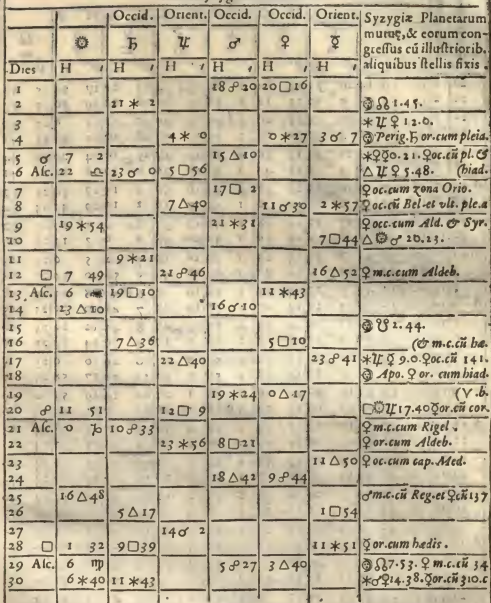 Occid. Orient. Occid. Occid. Orient. Syzygiæ Planetarum
☼ ♄ ♃ ♂ ♀ ☿ mutuę, & eorum con-
gressus cū illustriorib.
Dies H ′ H ′ H ′ H ′ H ′ H ′ aliquibus stellis fixis.
1 18 ☍ 20 20 □ 16
2 21 ✶ 2 ☊ 1.45.
3 ✶ ♃ ♀ 12.0.
4 4 ✶ 0 0 ✶ 27 3 ☌ 7 Perig. ♄ or. cum pleia.
5 ☌ 7 2 15 △ 10 ✶ ♀ ☿ 0.21. ♀ oc. cū pl. &
6 Asc. 22 ♎ 23 ☌ 0 5 □ 56 △ ♃ ♀ 5.48. (hiad.
7 17 □ 2 ♀ oc. cum zona Orio.
8 7 △ 40 11 ☌ 30 2 ✶ 57 ♀ oc. cū Bel. et vlt. ple. a
9 19 ✶ 54 21 ✶ 31 ♀ occ. cum Ald. & Syr.
10 7 □ 44 △ ☼ ♂ 20.23.
11 9 ✶ 21
12 □ 7 49 21 ☍ 46 16 △ 52 ♀ m.c. cum Aldeb.
13 Asc. 6 19 □ 10 11 ✶ 43
14 23 △ 10 16 ☌ 10
15 ☋ 2.44.
16 7 △ 36 5 □ 10 (& m.c. cū hæ.
17 22 △ 40 23 ☍ 41 ✶ ♃ ☿ 9.0. ♀ oc. cū 141.
18 Apo. ♀ or. cum hiad.
19 19 ✶ 24 0 △ 17 (V.b.
20 ☍ 11 51 12 □ 9 □ ☼ ♃ 17.40 ☿ or. cū cor.
21 Asc. 0 ♑ 10 ☍ 33 ♀ m.c. cum Rigel.
22 23 ✶ 56 8 □ 21 ♀ or. cum Aldeb.
23 11 △ 50 ♀ oc. cum cap. Med.
24 18 △ 42 9 ☍ 44
25 16 △ 48 ♂ m.c. cū Reg. et ♀ cū 137
26 5 △ 17 1 □ 54
27 14 ☌ 2
28 □ 1 32 9 □ 39 11 ✶ 51 ☿ or. cum hædis.
29 Asc. 6 ♍ 5 ☍ 27 3 △ 40 ☊ 7.53. ♀ m.c. cū 34
30 6 ✶ 40 11 ✶ 43 ✶ ♂ ♀ 14.38. ☿ or. cū 310. c